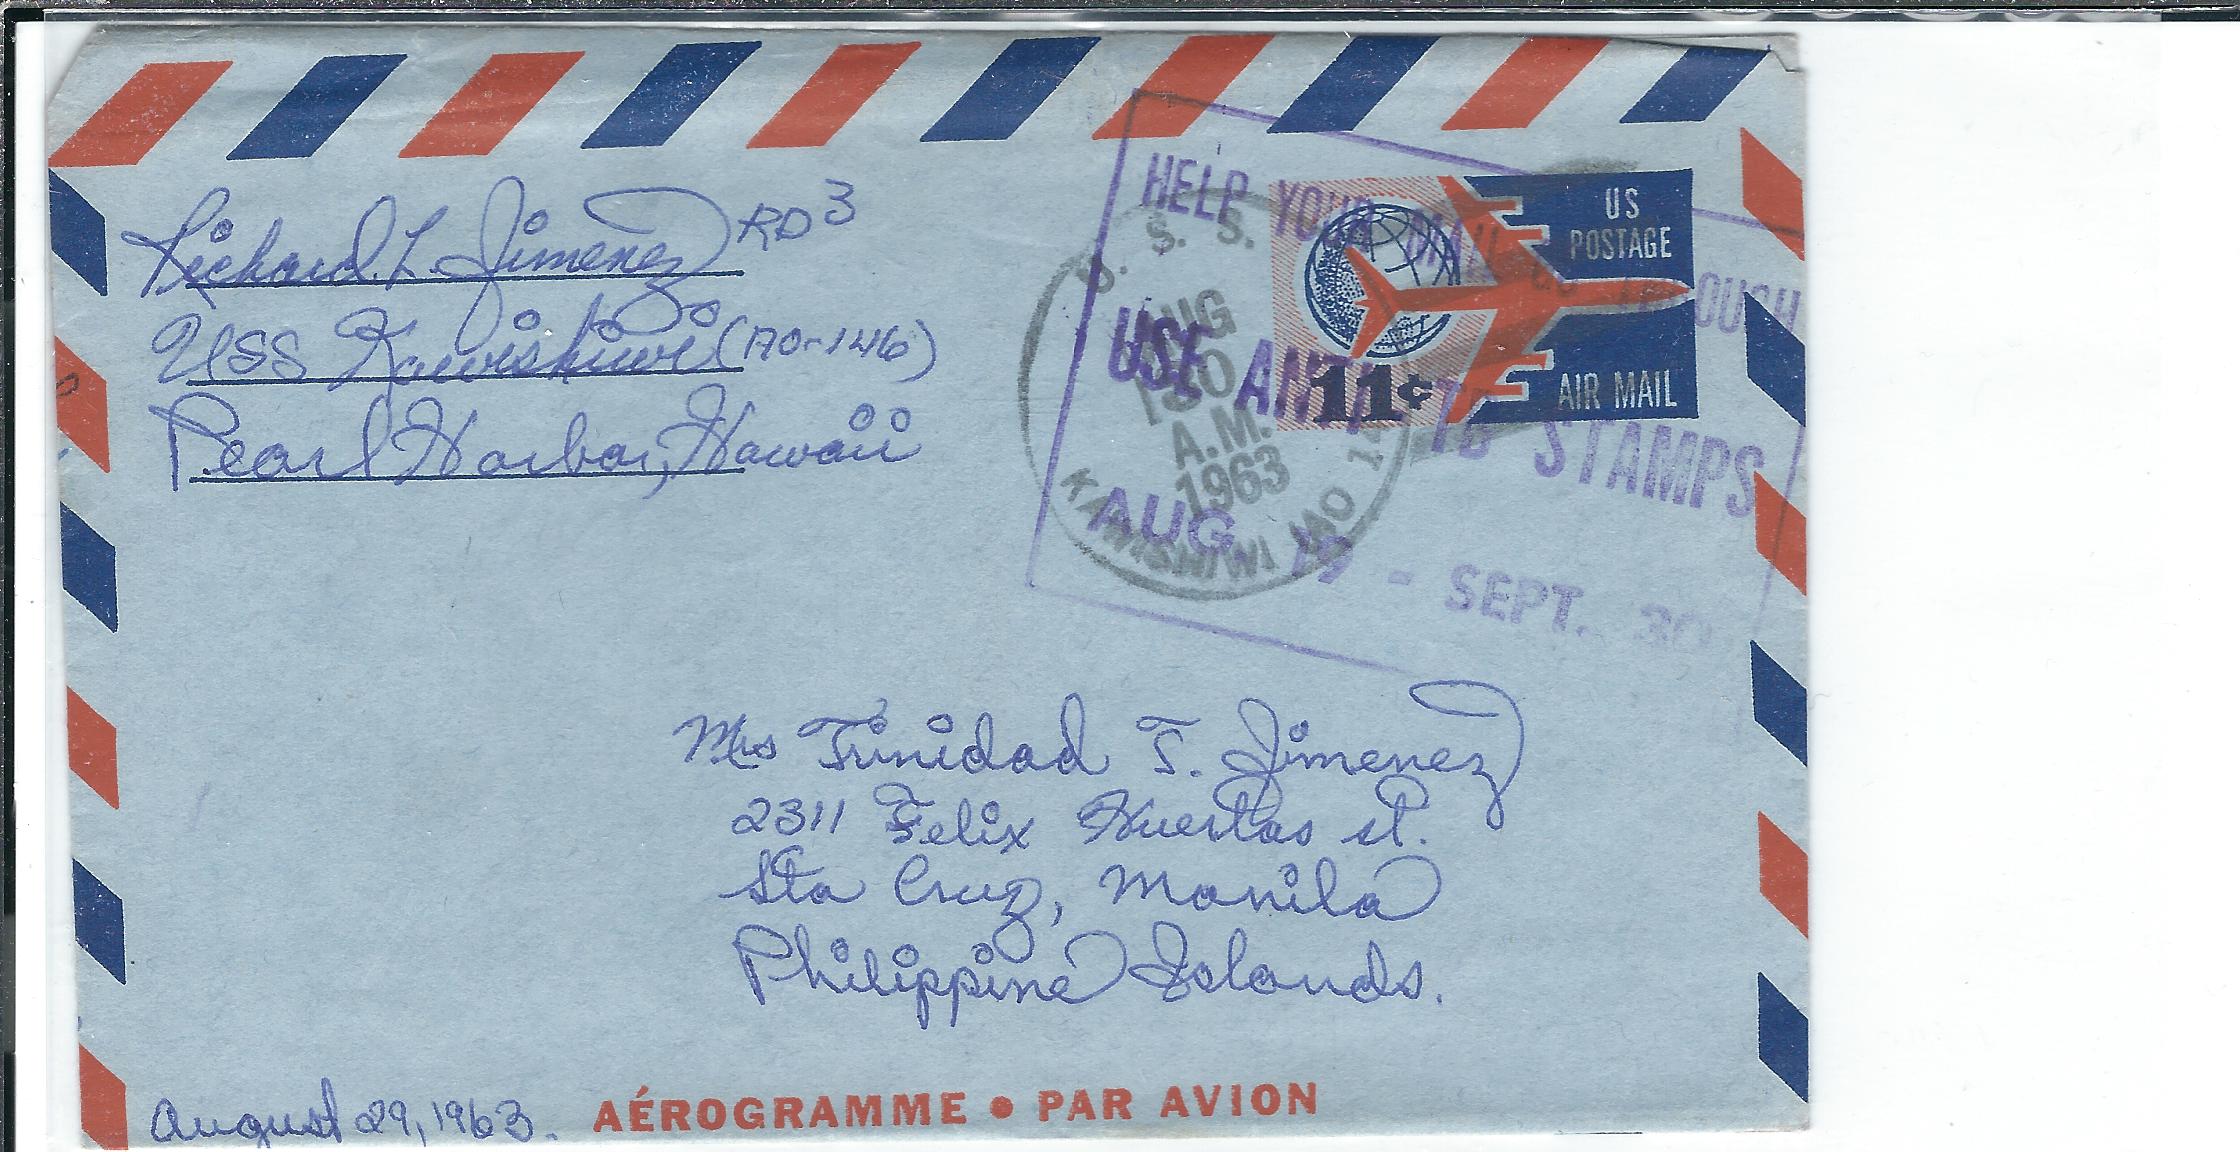 Richard L. Jimenez RD3
USS Kawishiwi (AO-146)
Pearl Harbor, Hawaii
HELP YOUR MAIL GO THROUGH
USE ANTI TB STAMPS
AUG. 19 - SEPT. 30
U. S. S.
AUG
30
A.M.
1963
KAWISHIWI (AO 146)
US
POSTAGE
11¢
AIR MAIL
Mrs Trinidad T. Jimenez
2311 Felix Huertas St.
Sta Cruz, Manila
Philippine Islands.
August 29, 1963.
AÉROGRAMME • PAR AVION